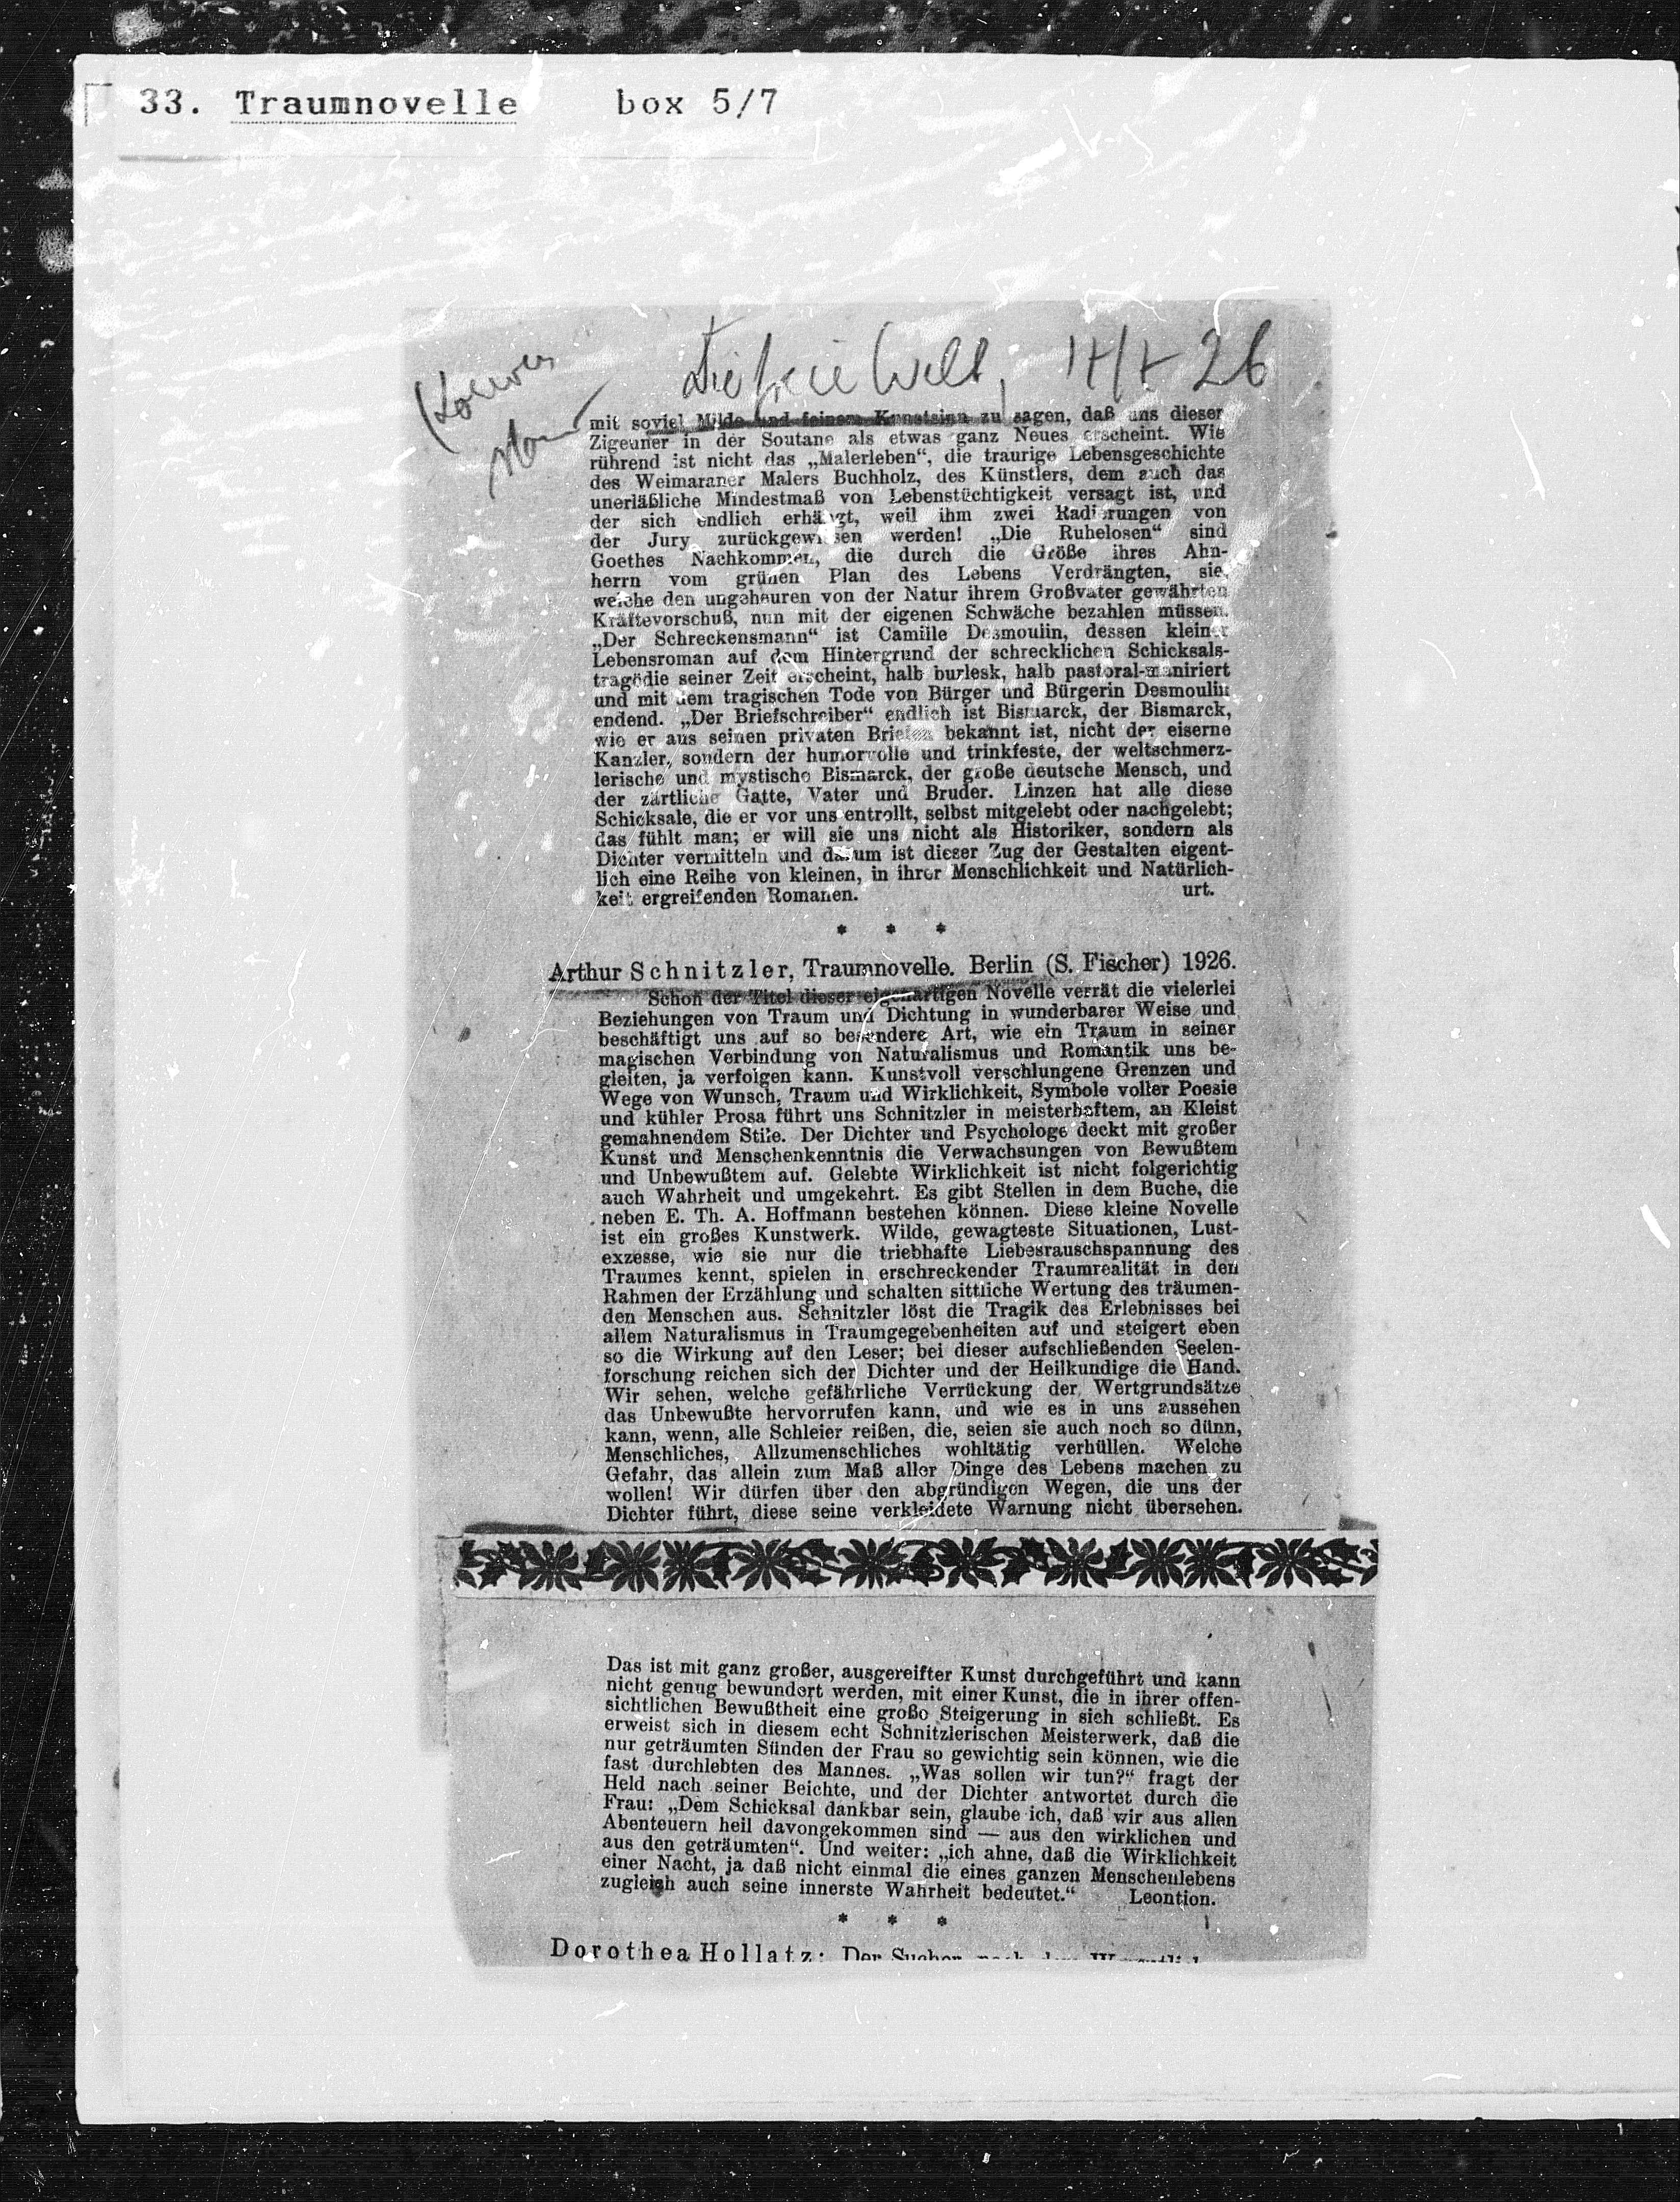 33. Traumnovelle box 5/7
Die freie Welt, 26
mit soviel Milde und feinem Kunstsinn zu sagen, daß uns dieser
Zigeuner in der Soutane als etwas ganz Neues erscheint. Wie
rührend ist nicht das „Malerleben“, die traurige Lebensgeschichte
des Weimaraner Malers Buchholz, des Künstlers, dem auch das
unerläßliche Mindestmaß von Lebenstüchtigkeit versagt ist, und
der sich endlich erhängt, weil ihm zwei Radierungen von
der Jury zurückgewiesen werden! „Die Ruhelosen“ sind
Goethes Nachkommen, die durch die Größe ihres Ahn-
herrn vom grünen Plan des Lebens Verdrängten, sie,
welche den ungeheuren von der Natur ihrem Großvater gewährten
Kräftevorschuß, nun mit der eigenen Schwäche bezahlen müssen.
„Der Schreckensmann“ ist Camille Desmoulin, dessen kleiner
Lebensroman auf dem Hintergrund der schrecklichen Schicksals-
tragödie seiner Zeit erscheint, halb burlesk, halb pastoral-maniriert
und mit dem tragischen Tode von Bürger und Bürgerin Desmoulin
endend. „Der Briefschreiber“ endlich ist Bismarck, der Bismarck,
wie er aus seinen privaten Briefen bekannt ist, nicht der eiserne
Kanzler, sondern der humorvolle und trinkfeste, der weltschmerz-
lerische und mystische Bismarck, der große deutsche Mensch, und
der zärtliche Gatte, Vater und Bruder. Linzen hat alle diese
Schicksale, die er vor uns entrollt, selbst mitgelebt oder nachgelebt;
das fühlt man; er will sie uns nicht als Historiker, sondern als
Dichter vermitteln und darum ist dieser Zug der Gestalten eigent-
lich eine Reihe von kleinen, in ihrer Menschlichkeit und Natürlich-
keit ergreifenden Romanen. urt.
* * *
Arthur Schnitzler, Traumnovelle. Berlin (S. Fischer) 1926.
Schon der Titel dieser eigenartigen Novelle verrät die vielerlei
Beziehungen von Traum und Dichtung in wunderbarer Weise und
beschäftigt uns auf so besondere Art, wie ein Traum in seiner
magischen Verbindung von Naturalismus und Romantik uns be-
gleiten, ja verfolgen kann. Kunstvoll verschlungene Grenzen und
Wege von Wunsch, Traum und Wirklichkeit, Symbole voller Poesie
und kühler Prosa führt uns Schnitzler in meisterhaftem, an Kleist
gemahnendem Stile. Der Dichter und Psychologe deckt mit großer
Kunst und Menschenkenntnis die Verwachsungen von Bewußtem
und Unbewußtem auf. Gelebte Wirklichkeit ist nicht folgerichtig
auch Wahrheit und umgekehrt. Es gibt Stellen in dem Buche, die
neben E. Th. A. Hoffmann bestehen können. Diese kleine Novelle
ist ein großes Kunstwerk. Wilde, gewagteste Situationen, Lust-
exzesse, wie sie nur die triebhafte Liebesrauschspannung des
Traumes kennt, spielen in erschreckender Traumrealität in den
Rahmen der Erzählung und schalten sittliche Wertung des träumen-
den Menschen aus. Schnitzler löst die Tragik des Erlebnisses bei
allem Naturalismus in Traumgegebenheiten auf und steigert eben
so die Wirkung auf den Leser; bei dieser aufschließenden Seelen-
forschung reichen sich der Dichter und der Heilkundige die Hand.
Wir sehen, welche gefährliche Verrückung der Wertgrundsätze
das Unbewußte hervorrufen kann, und wie es in uns aussehen
kann, wenn, alle Schleier reißen, die, seien sie auch noch so dünn,
Menschliches, Allzumenschliches wohltätig verhüllen. Welche
Gefahr, das allein zum Maß aller Dinge des Lebens machen zu
wollen! Wir dürfen über den abgründigen Wegen, die uns der
Dichter führt, diese seine verkleidete Warnung nicht übersehen.
Das ist mit ganz großer, ausgereifter Kunst durchgeführt und kann
nicht genug bewundert werden, mit einer Kunst, die in ihrer offen-
sichtlichen Bewußtheit eine große Steigerung in sich schließt. Es
erweist sich in diesem echt Schnitzlerischen Meisterwerk, daß die
nur geträumten Sünden der Frau so gewichtig sein können, wie die
fast durchlebten des Mannes. „Was sollen wir tun?“ fragt der
Held nach seiner Beichte, und der Dichter antwortet durch die
Frau: „Dem Schicksal dankbar sein, glaube ich, daß wir aus allen
Abenteuern heil davongekommen sind — aus den wirklichen und
aus den geträumten“. Und weiter: „ich ahne, daß die Wirklichkeit
einer Nacht, ja daß nicht einmal die eines ganzen Menschenlebens
zugleich auch seine innerste Wahrheit bedeutet.“ Leontion.
* * *
Dorothea Hollatz: Der Sucher nach dem